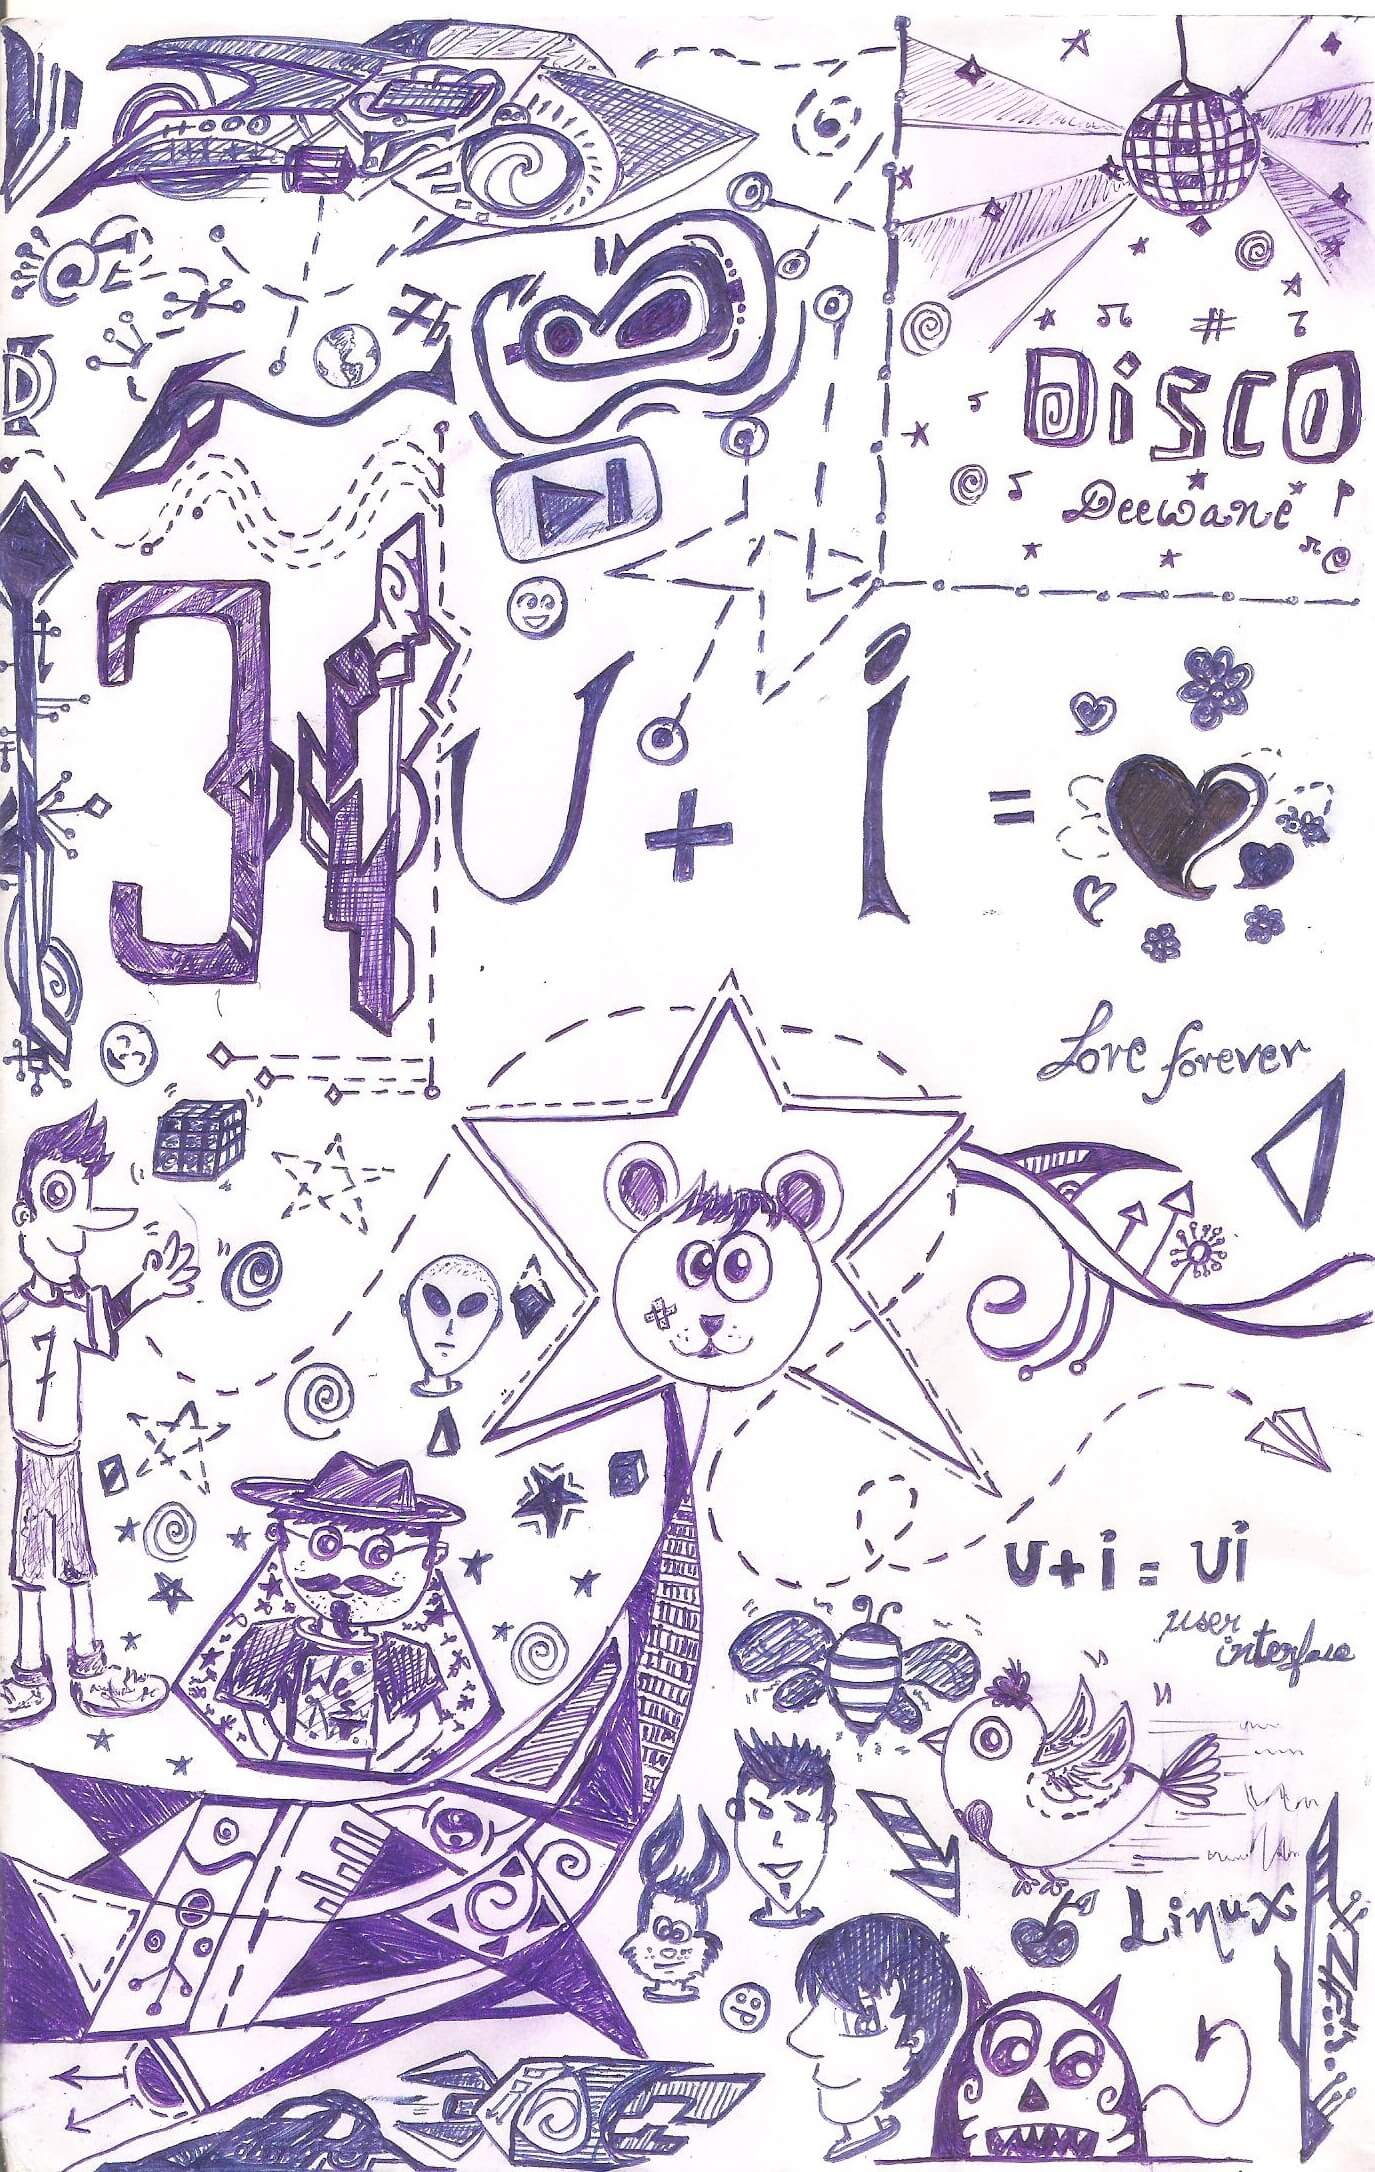 @
#
DISCO
Deewane !
D
3
U + i =
Love forever
7
U+i = Ui
user
interface
West
Linux